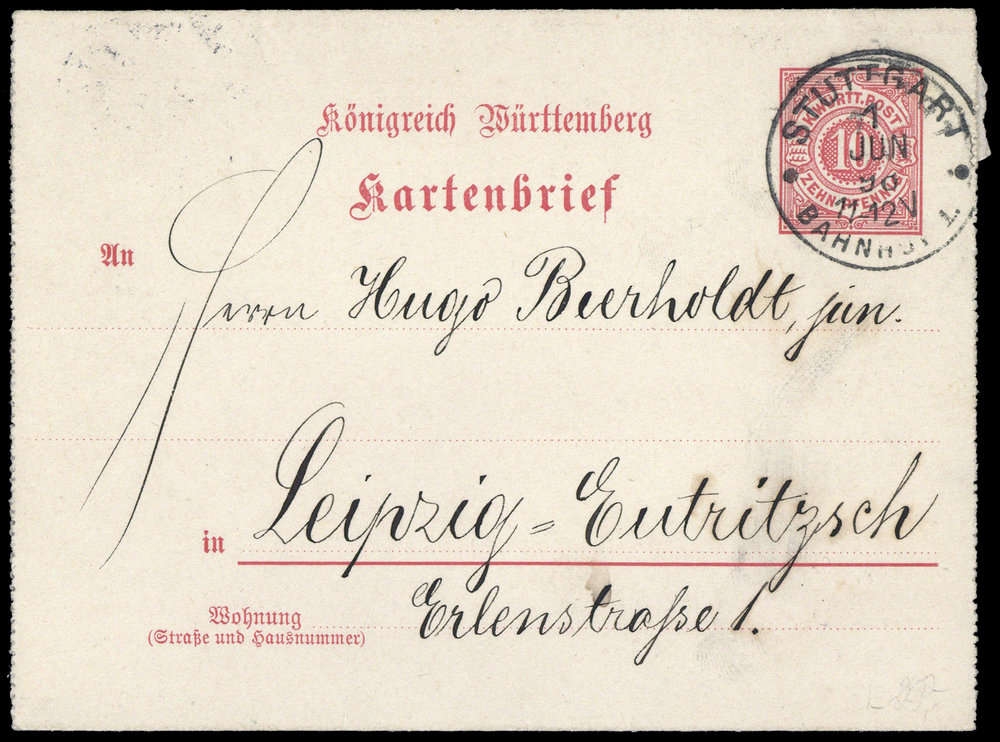 Königreich Württemberg
Kartenbrief
K. WÜRTT. POST
10
ZEHN PFENNIG
STUTTGART
1
JUN
96
11-12V
BAHNHOF 1.
An
Herrn Hugo Beerholdt, jun.
in Leipzig=Eutritzsch
Wohnung
(Straße und Hausnummer)
Erlenstraße 1.